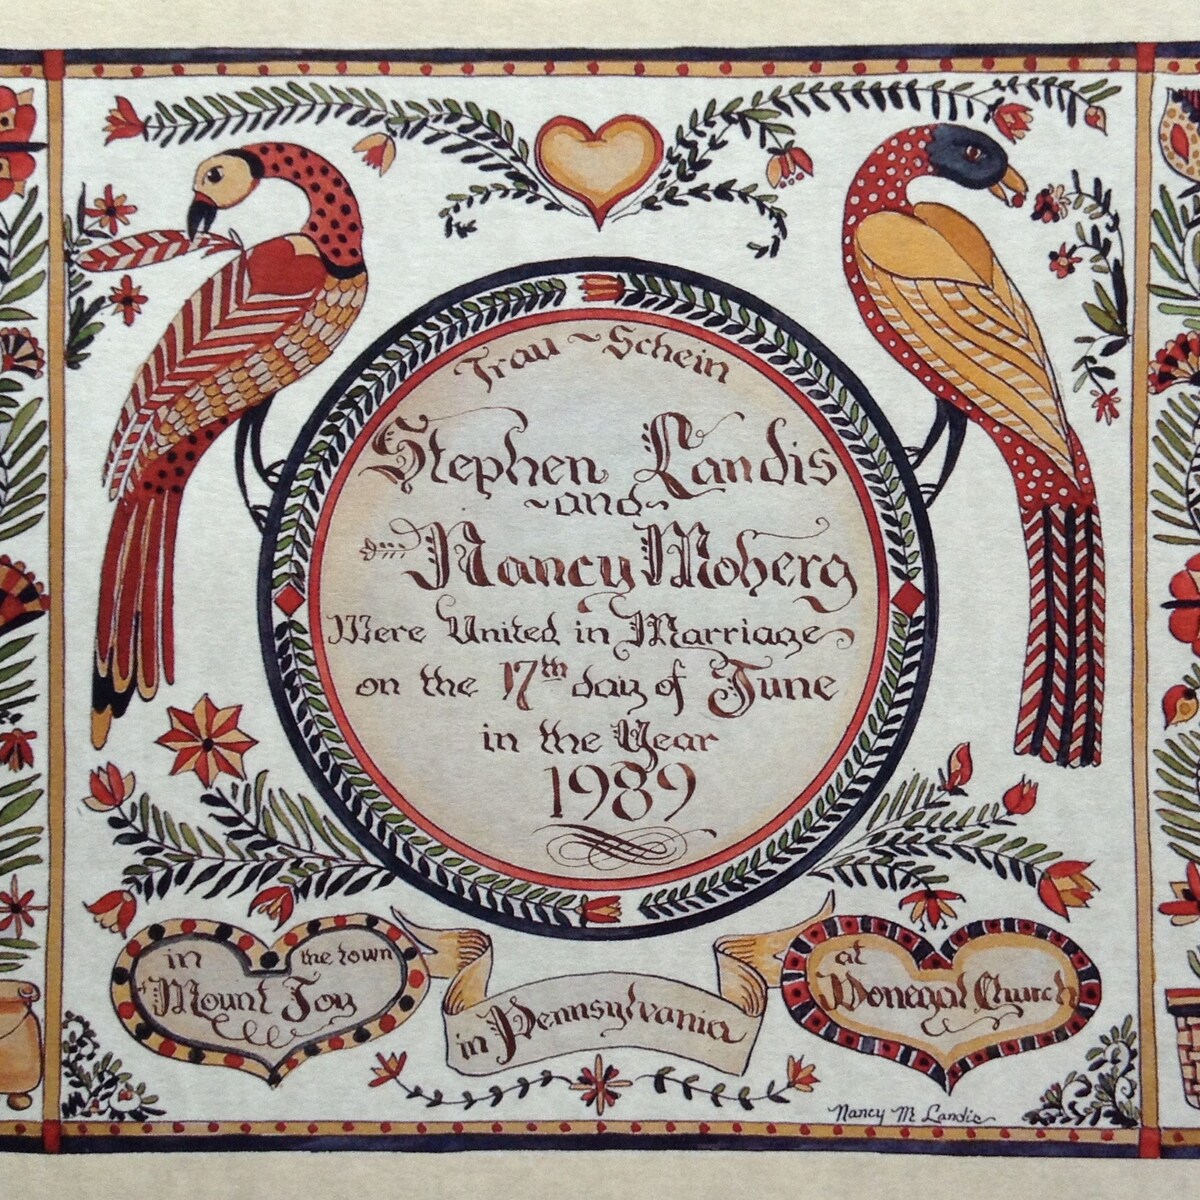 Trau ~ Schein
Stephen Landis
~and~
Nancy Moberg
Were United in Marriage
on the 17th day of June
in the Year
1989
in the town
Mount Joy
in Pennsylvania
at
Donegal Church
Nancy M Landis